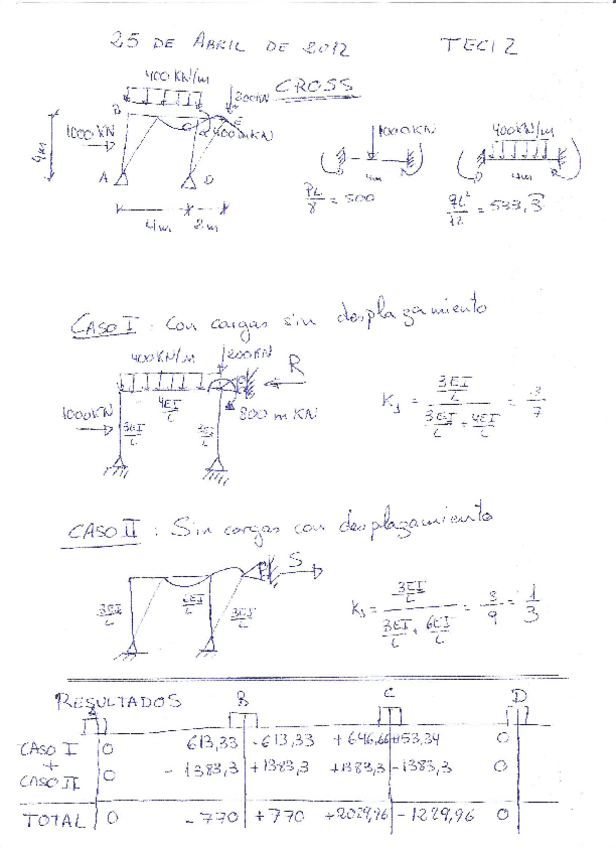 25 DE ABRIL DE 2012 TECI 2
400KN/m 200KN CROSS
B C E
1000KN 400mKN
4m
A D
4m 2m
1000KN 400KN/m
4m 4m
PL/8 = 500 qL²/12 = 533,3
CASO I : Con cargas sin desplazamiento
400KN/m 200KN R
4EI/L
1000KN 3EI/L 3EI/L 800 mKN
K1 = (3EI/L)/(3EI/L + 4EI/L) = 3/7
CASO II : Sin cargas con desplazamiento
S
3EI/L 6EI/L 3EI/L
K1 = (3EI/L)/(3EI/L + 6EI/L) = 3/9 = 1/3
RESULTADOS B C D
CASO I 0 613,33 -613,33 +646,66 +153,34 0
+
CASO II 0 -1383,3 +1383,3 +1383,3 -1383,3 0
TOTAL 0 -770 +770 +2029,96 -1229,96 0